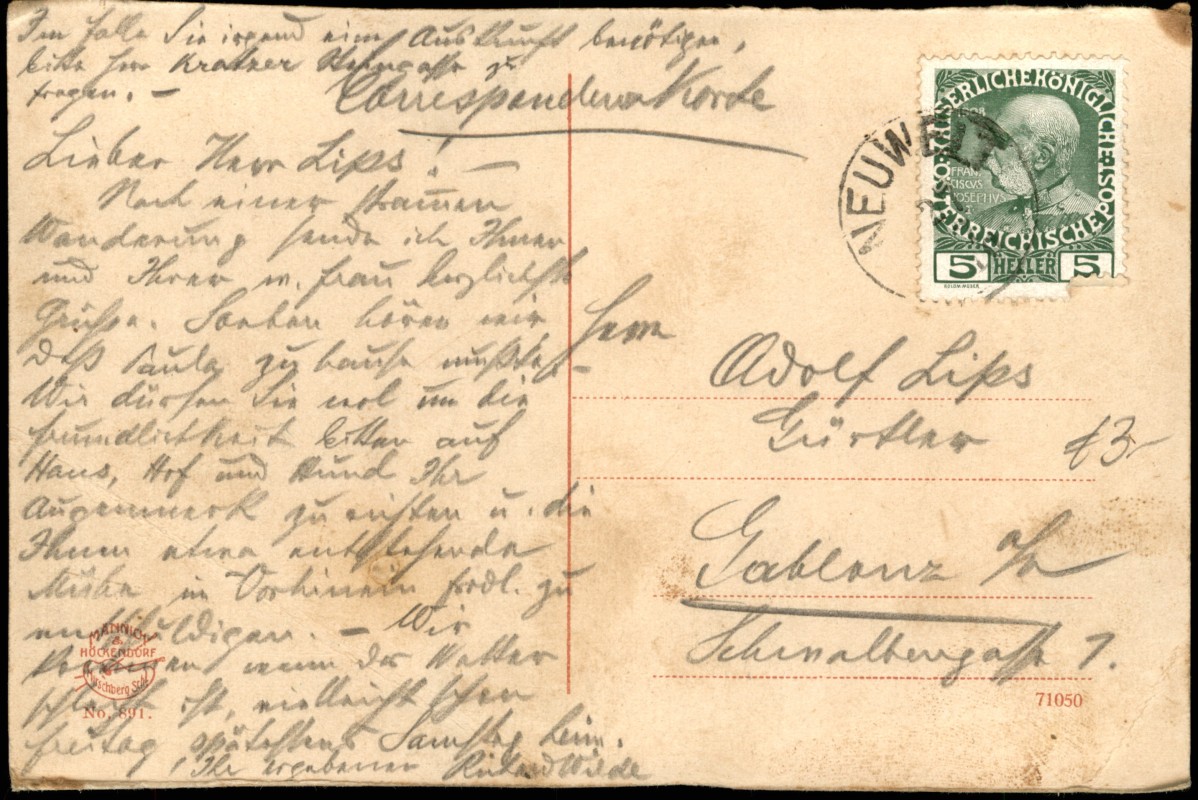 Im Falle Sie irgend eine Auskunft benötigen,
bitte Herr Kratzer Steingasse zu
fragen. —
Correspondenz Karte
Lieber Herr Lips! —
Nach einer strammen
Wanderung sende ich Ihnen
und Ihrer w. Frau herzlichste
Grüsse. Soeben hören wir
daß Paula zu Hause
Wir dürfen Sie wol um die
freundlichkeit bitten auf
Haus, Hof und Hund Ihr
Augenmerk zu richten u. die
Ihnen etwa entstehende
Mühe im Vorhinein frdl. zu
entschuldigen. — Wir
kommen wenn das Wetter
schlecht ist, vielleicht schon
freitag spätestens Samstag heim.
Ihr ergebener Richard Wilde
MÄNNICH
&
HÖCKENDORF
Hirschberg Schl.
No. 891.
KAISERLICHEKÖNIGLICHE POST
ÖSTERREICHISCHE POST
1908
FRAN
CISCVS
IOSEPHVS
I
5 HELLER 5
KOLOM. MOSER.
NEUWELT
Herrn
Adolf Lips
Gürtler
Gablonz a/N
Schwalbengasse 7.
71050